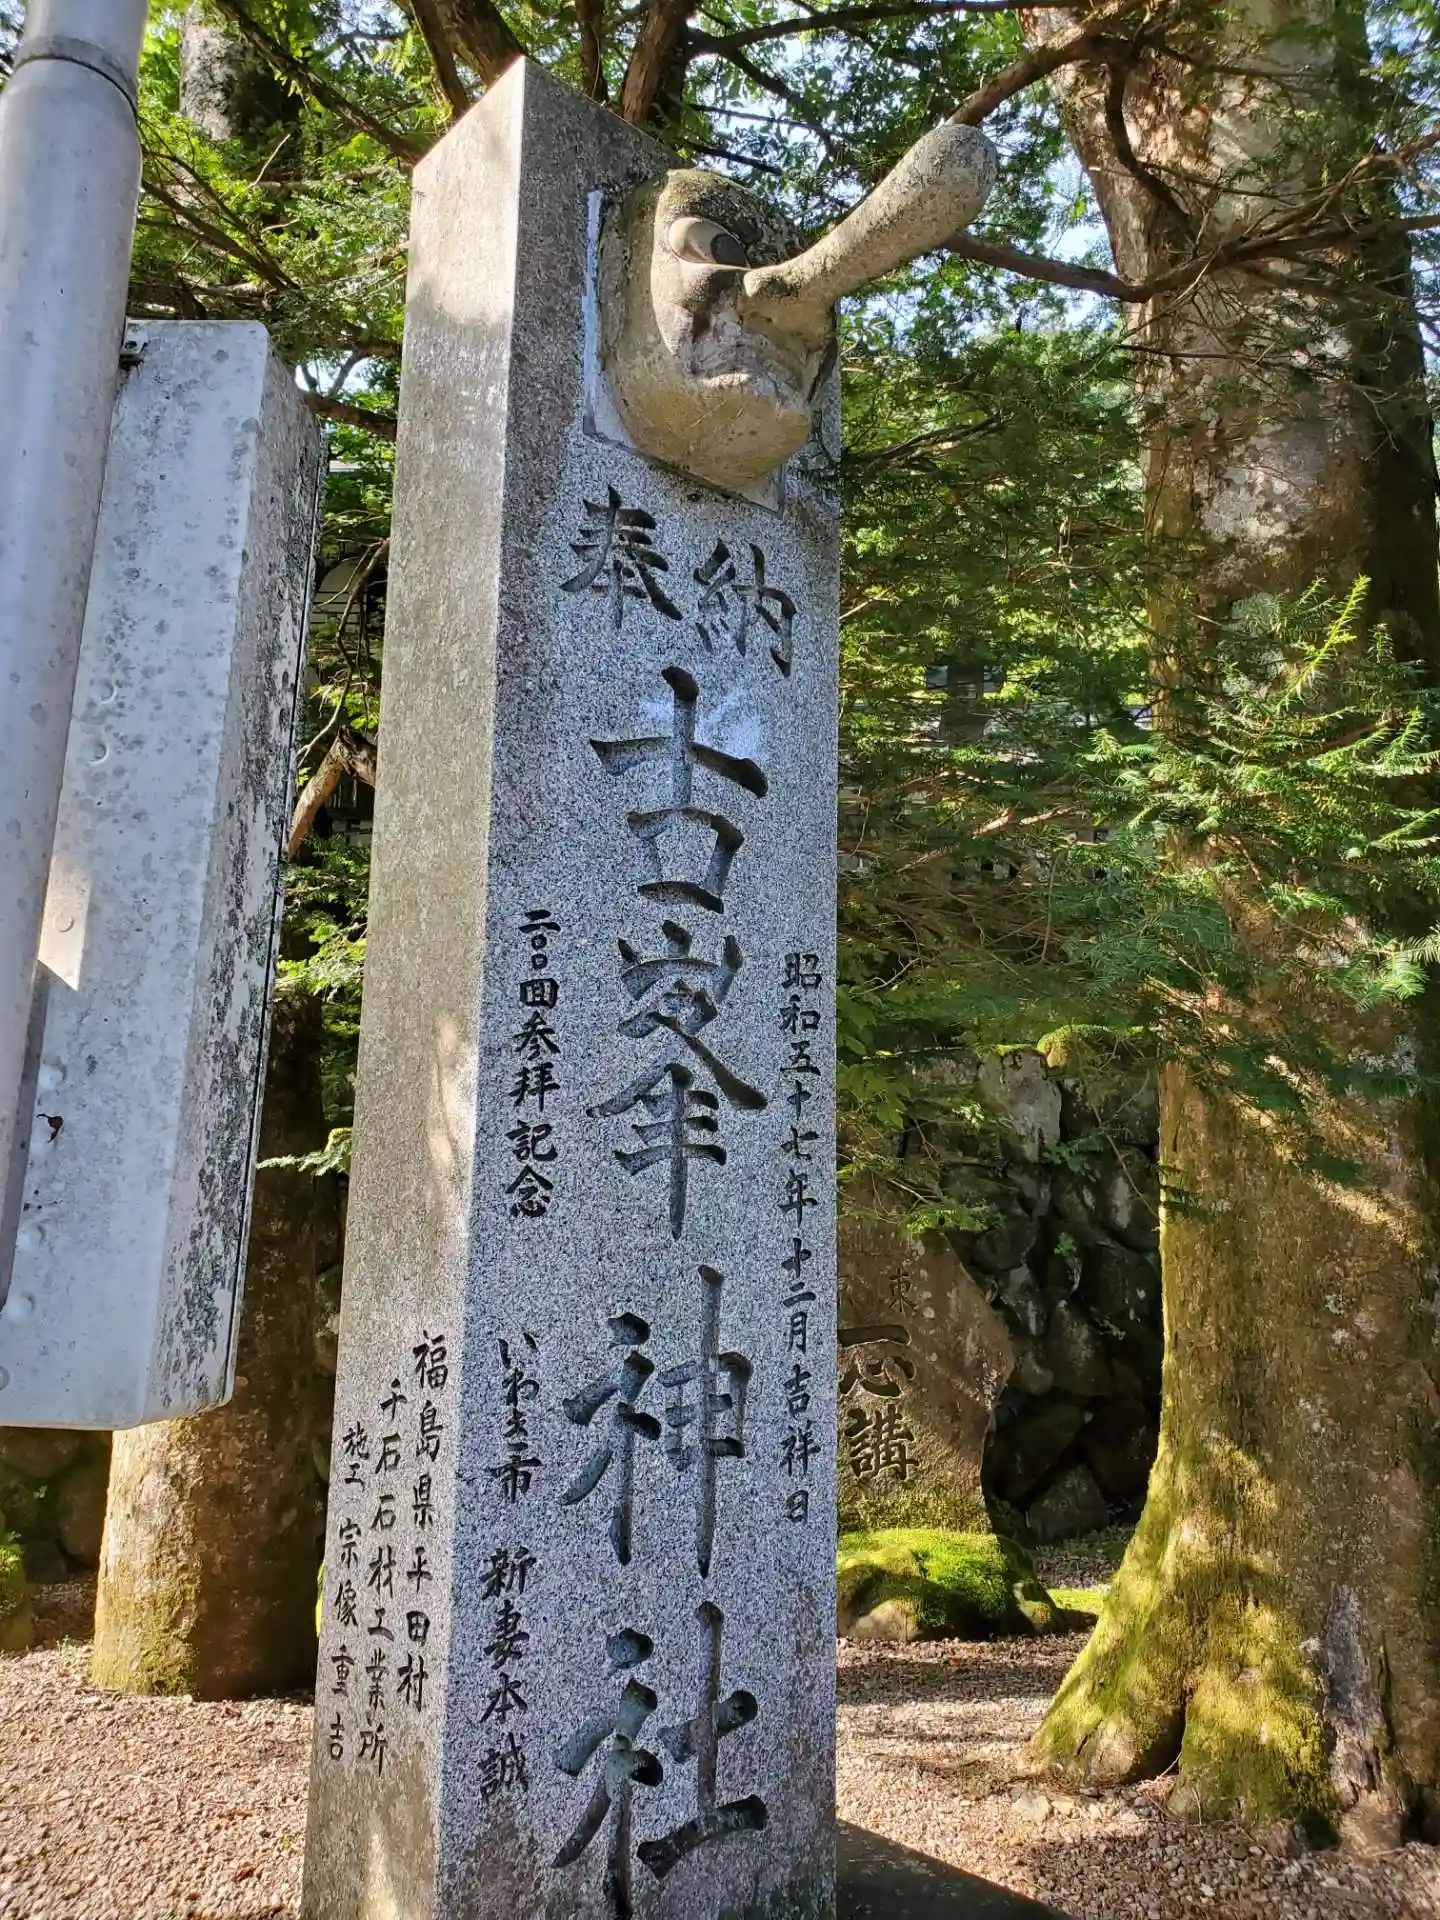 奉納
古峯神社
昭和五十七年十二月吉祥日
二〇〇四参拝記念
いわき市 新妻本誠
福島県平田村
千石石材工業所
施工 宗像重吉
東
一心講